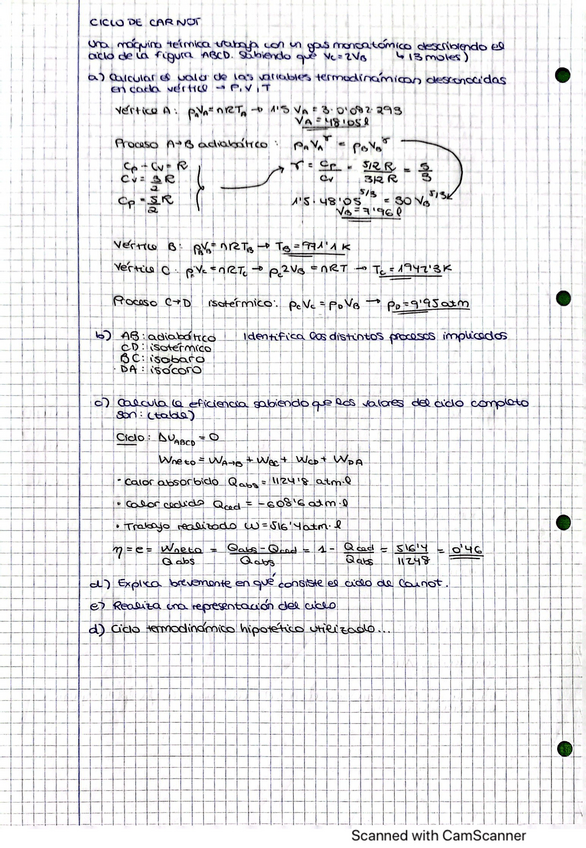 CICLO DE CARNOT
Una máquina térmica trabaja con un gas monoatómico describiendo el
ciclo de la figura ABCD. Sabiendo que Vc=2VB ↳ (3 moles)
a) Calcular el valor de las variables termodinámicas desconocidas
en cada vértice → P, V, T
Vértice A: pAVA=nRTA → 1'5 VA = 3·0'082·293
VA=48'05l
Proceso A→B adiabático: pAVA^γ = pBVB^γ
Cp - Cv = R
Cv = 3/2 R
Cp = 5/2 R
γ = Cp/Cv = 5/2 R / 3/2 R = 5/3
1'5·48'05^5/3 = 30 VB^5/3
VB=7'96l
Vértice B: pBVB=nRTB → TB=971'1K
Vértice C: pcVc=nRTc → pc2VB=nRT → Tc=1942'3K
Proceso C→D isotérmico: pcVc=pDVD → pD=9'95atm
b) AB: adiabático Identifica los distintos procesos implicados
CD: isotérmico
BC: isobaro
DA: isócoro
c) Calcula la eficiencia sabiendo que los valores del ciclo completo
son: (tabla)
Ciclo: ΔUABCD = 0
Wneto = WA→B + WBC + WCD + WDA
· Calor absorbido Qabs = 1124'8 atm·l
· Calor cedido Qced = -608'6 atm·l
· Trabajo realizado W=516'4atm·l
η=e= Wneto/Qabs = Qabs-Qced/Qabs = 1 - Qced/Qabs = 516'4/11248 = 0'46
d) Explica brevemente en qué consiste el ciclo de Carnot.
e) Realiza una representación del ciclo
d) Ciclo termodinámico hipotético utilizado...
Scanned with CamScanner